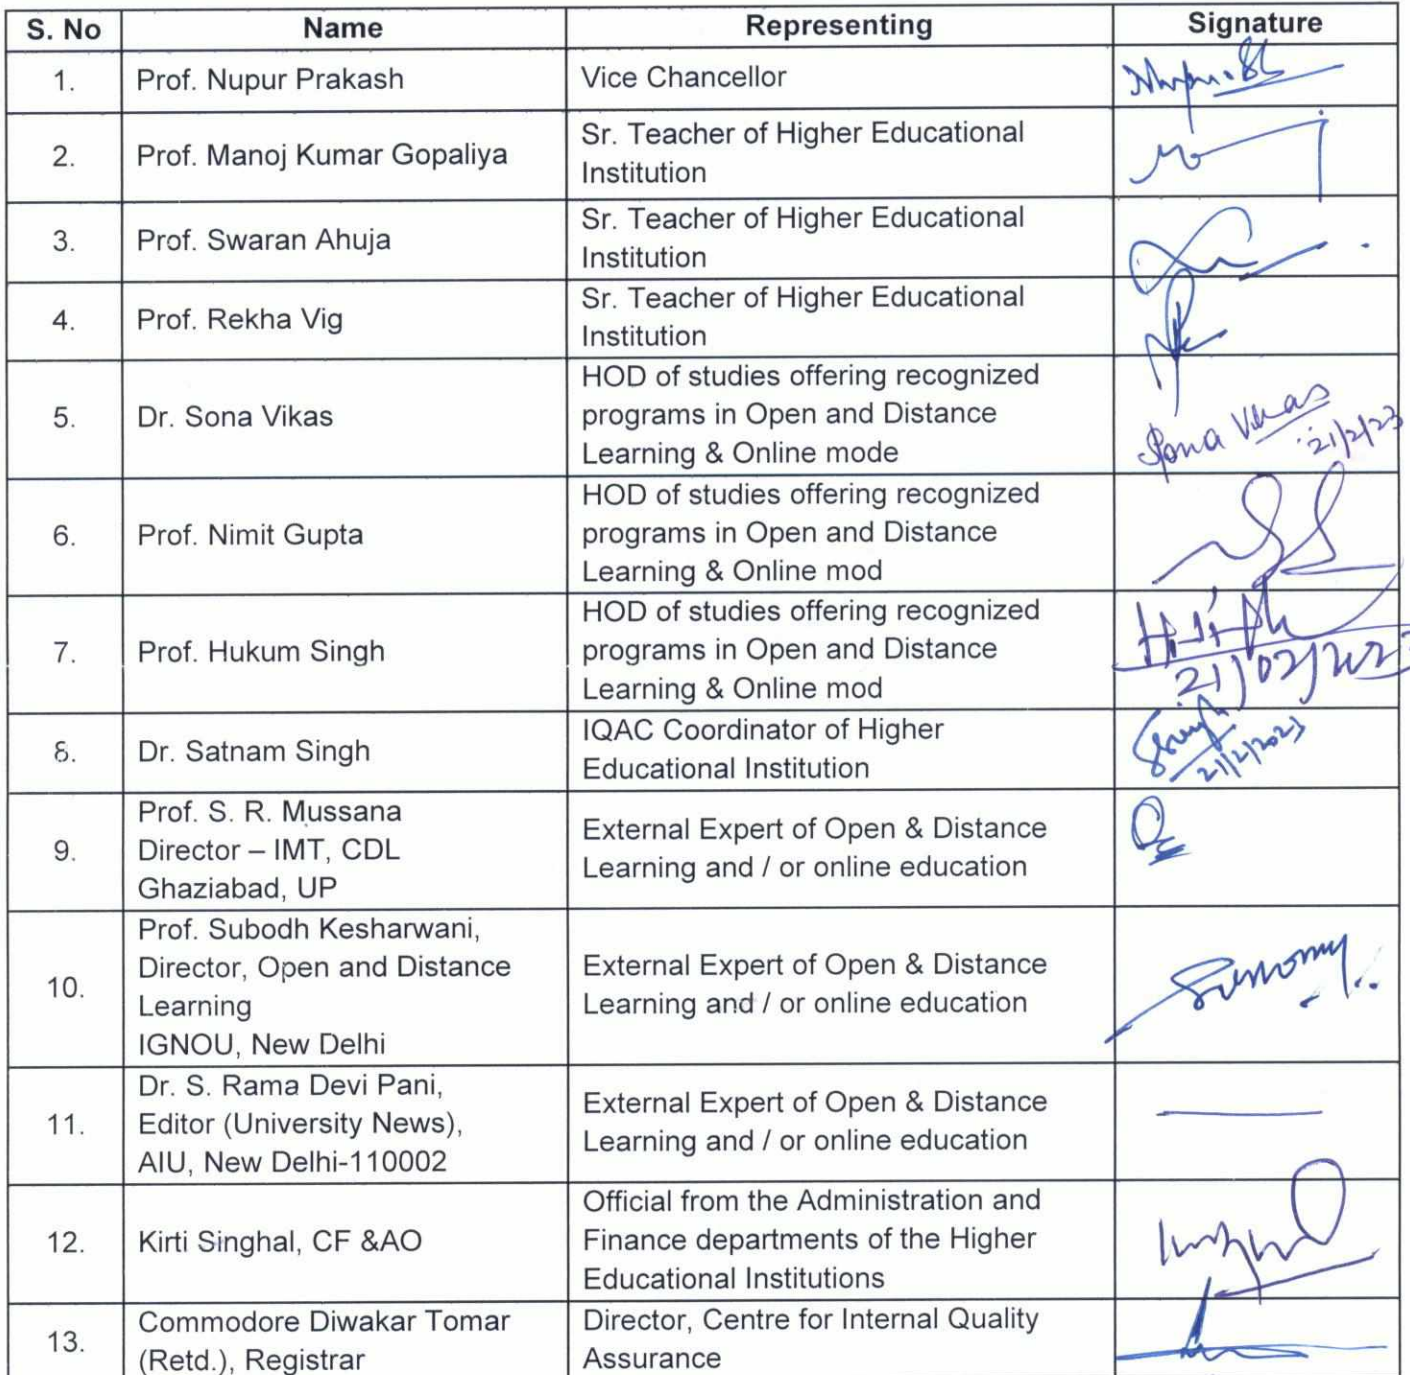 S. No Name Representing Signature
1. Prof. Nupur Prakash Vice Chancellor
2. Prof. Manoj Kumar Gopaliya Sr. Teacher of Higher Educational
Institution
3. Prof. Swaran Ahuja Sr. Teacher of Higher Educational
Institution
4. Prof. Rekha Vig Sr. Teacher of Higher Educational
Institution
5. Dr. Sona Vikas HOD of studies offering recognized
programs in Open and Distance
Learning & Online mode
Sona Vikas
21/2/23
6. Prof. Nimit Gupta HOD of studies offering recognized
programs in Open and Distance
Learning & Online mod
7. Prof. Hukum Singh HOD of studies offering recognized
programs in Open and Distance
Learning & Online mod
21/02/2023
8. Dr. Satnam Singh IQAC Coordinator of Higher
Educational Institution
21/2/2023
9. Prof. S. R. Mussana
Director – IMT, CDL
Ghaziabad, UP
External Expert of Open & Distance
Learning and / or online education
10. Prof. Subodh Kesharwani,
Director, Open and Distance
Learning
IGNOU, New Delhi
External Expert of Open & Distance
Learning and / or online education
11. Dr. S. Rama Devi Pani,
Editor (University News),
AIU, New Delhi-110002
External Expert of Open & Distance
Learning and / or online education
12. Kirti Singhal, CF &AO
Official from the Administration and
Finance departments of the Higher
Educational Institutions
13. Commodore Diwakar Tomar
(Retd.), Registrar
Director, Centre for Internal Quality
Assurance